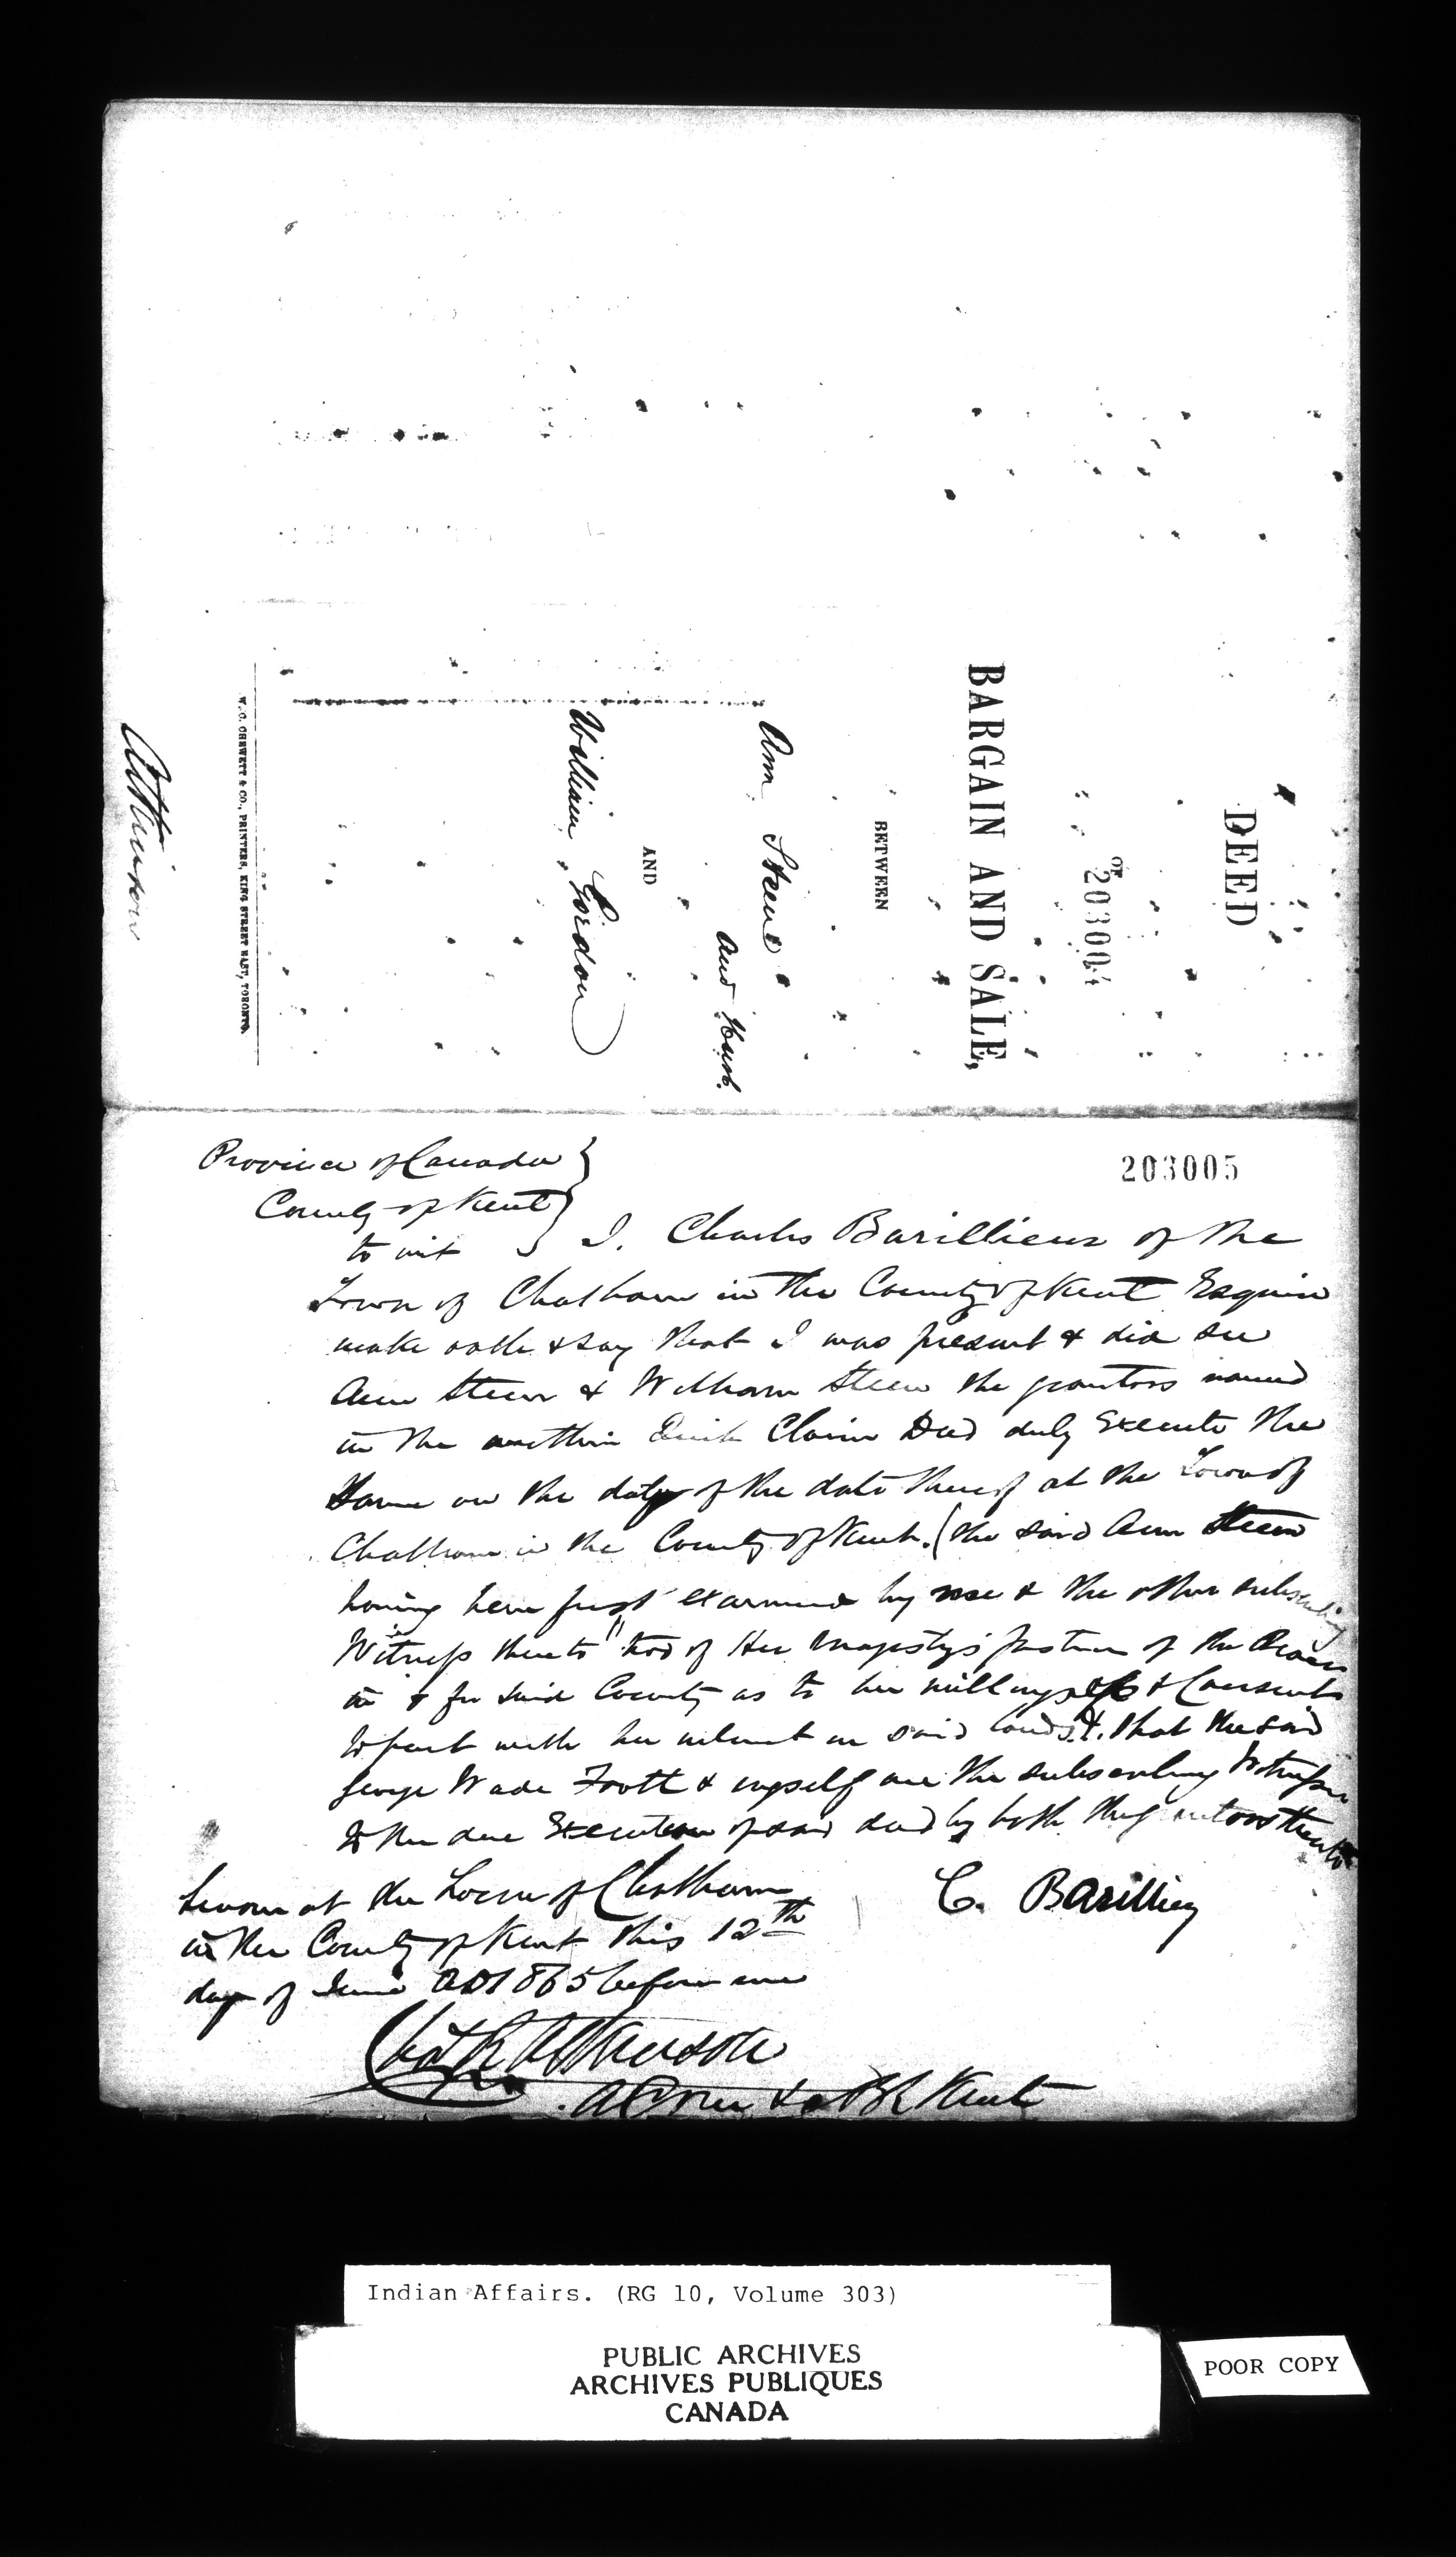 DEED
OF
203004
BARGAIN AND SALE,
BETWEEN
Ann Steen
and Husb.
AND
William Gordon
W. C. CHEWETT & CO., PRINTERS, KING STREET EAST, TORONTO.
Atkinson
203005
Province of Canada
County of Kent
to wit } I. Charles Barillier of the
Town of Chatham in the County of Kent Esquire
make oath & say that I was present & did see
Ann Steen & William Steen the grantors named
in the within Quit Claim Deed duly Execute the
Same on the day of the date thereof at the Town of
Chatham in the County of Kent. (the said Ann Steen
having been first examined by me & the other subscribing
Witness thereto two of Her Majesty's Justices of the Peace
in & for said County as to her willingness & Consent
to part with her interest in said lands &. that the said
George Wade Foott & myself are the subscribing Witnesses
to the due Execution of said deed by both the grantors thereto
Sworn at the Town of Chatham
in the County of Kent this 12th
day of June AD 1865 before me
C. Barillier
Chas R Atkinson
A Comr &c BR Kent
Indian Affairs. (RG 10, Volume 303)
PUBLIC ARCHIVES
ARCHIVES PUBLIQUES
CANADA
POOR COPY